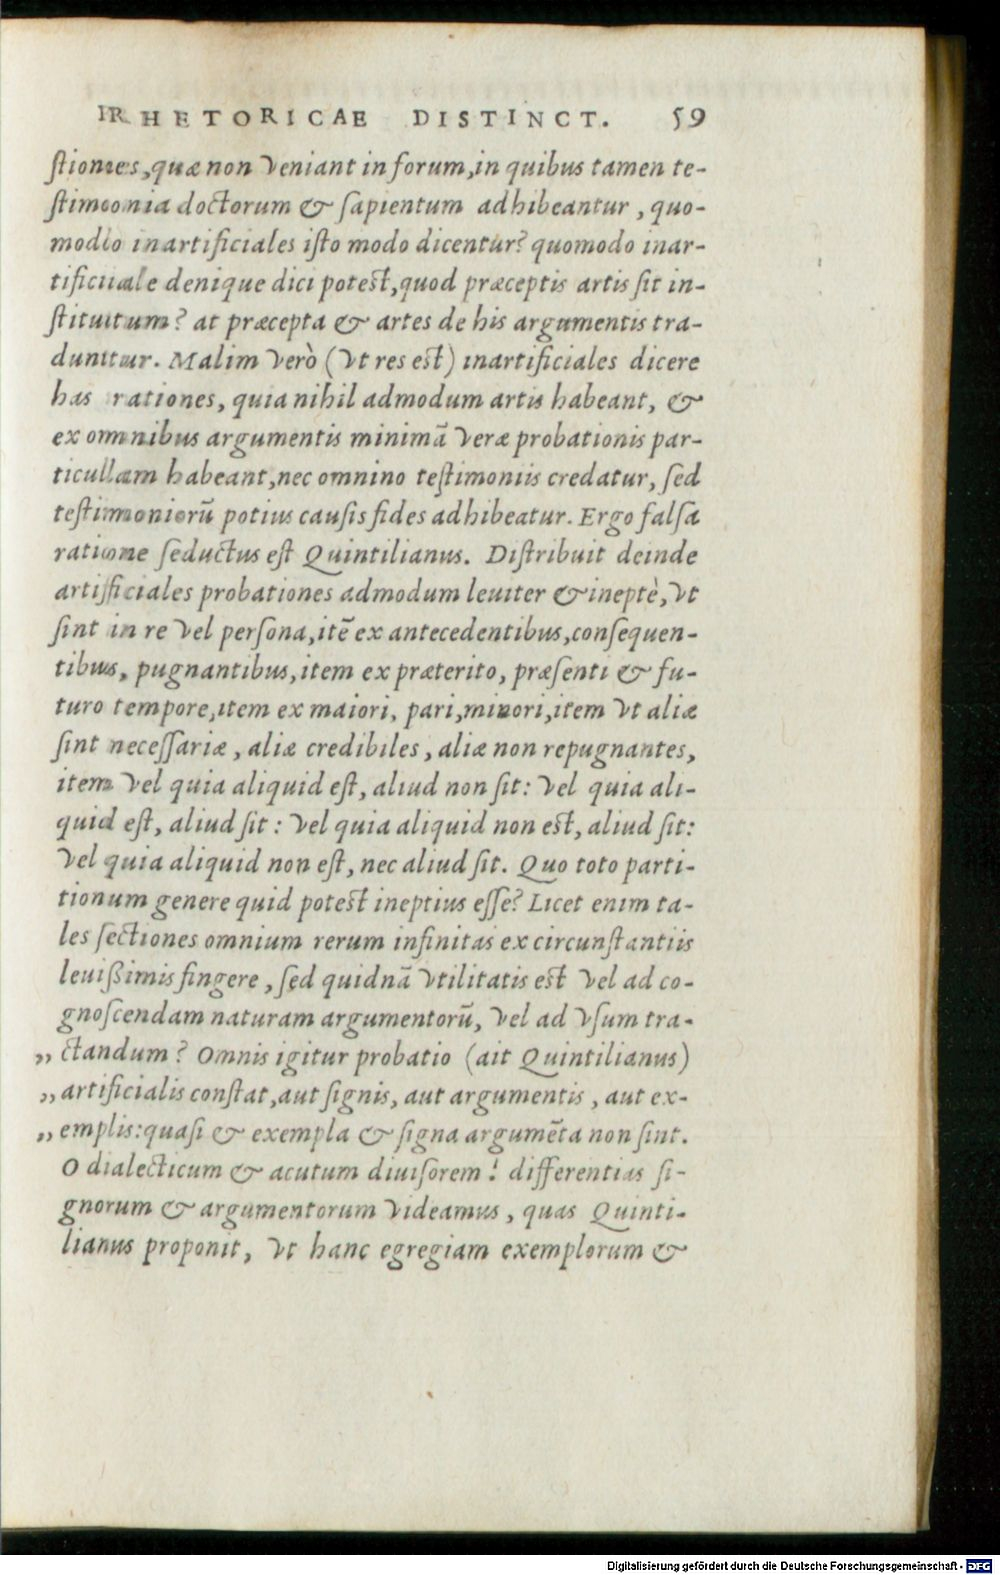 RHETORICAE DISTINCT. 59
ſtiones, quæ non veniant in forum, in quibus tamen te-
ſtimonia doctorum & ſapientum adhibeantur, quo-
modo inartificiales iſto modo dicentur? quomodo inar-
tificiale denique dici poteſt, quod præceptis artis ſit in-
ſtitutum? at præcepta & artes de his argumentis tra-
duntur. Malim verò (vt res eſt) inartificiales dicere
has rationes, quia nihil admodum artis habeant, &
ex omnibus argumentis minimā veræ probationis par-
ticulam habeant, nec omnino teſtimoniis credatur, ſed
teſtimoniorū potius cauſis fides adhibeatur. Ergo falſa
ratione ſeductus eſt Quintilianus. Diſtribuit deinde
artificiales probationes admodum leuiter & ineptè, vt
ſint in re vel perſona, itē ex antecedentibus, conſequen-
tibus, pugnantibus, item ex præterito, præſenti & fu-
turo tempore, item ex maiori, pari, minori, item vt aliæ
ſint neceſſariæ, aliæ credibiles, aliæ non repugnantes,
item vel quia aliquid eſt, aliud non ſit: vel quia ali-
quid eſt, aliud ſit: vel quia aliquid non eſt, aliud ſit:
vel quia aliquid non eſt, nec aliud ſit. Quo toto parti-
tionum genere quid poteſt ineptius eſſe? Licet enim ta-
les ſectiones omnium rerum infinitas ex circunſtantiis
leuißimis fingere, ſed quidnā vtilitatis eſt vel ad co-
gnoſcendam naturam argumentorū, vel ad vſum tra-
„ ctandum? Omnis igitur probatio (ait Quintilianus)
„ artificialis conſtat, aut ſignis, aut argumentis, aut ex-
„ emplis: quaſi & exempla & ſigna argumēta non ſint.
O dialecticum & acutum diuiſorem! differentias ſi-
gnorum & argumentorum videamus, quas Quinti-
lianus proponit, vt hanc egregiam exemplorum &
Digitalisierung gefördert durch die Deutsche Forschungsgemeinschaft - DFG